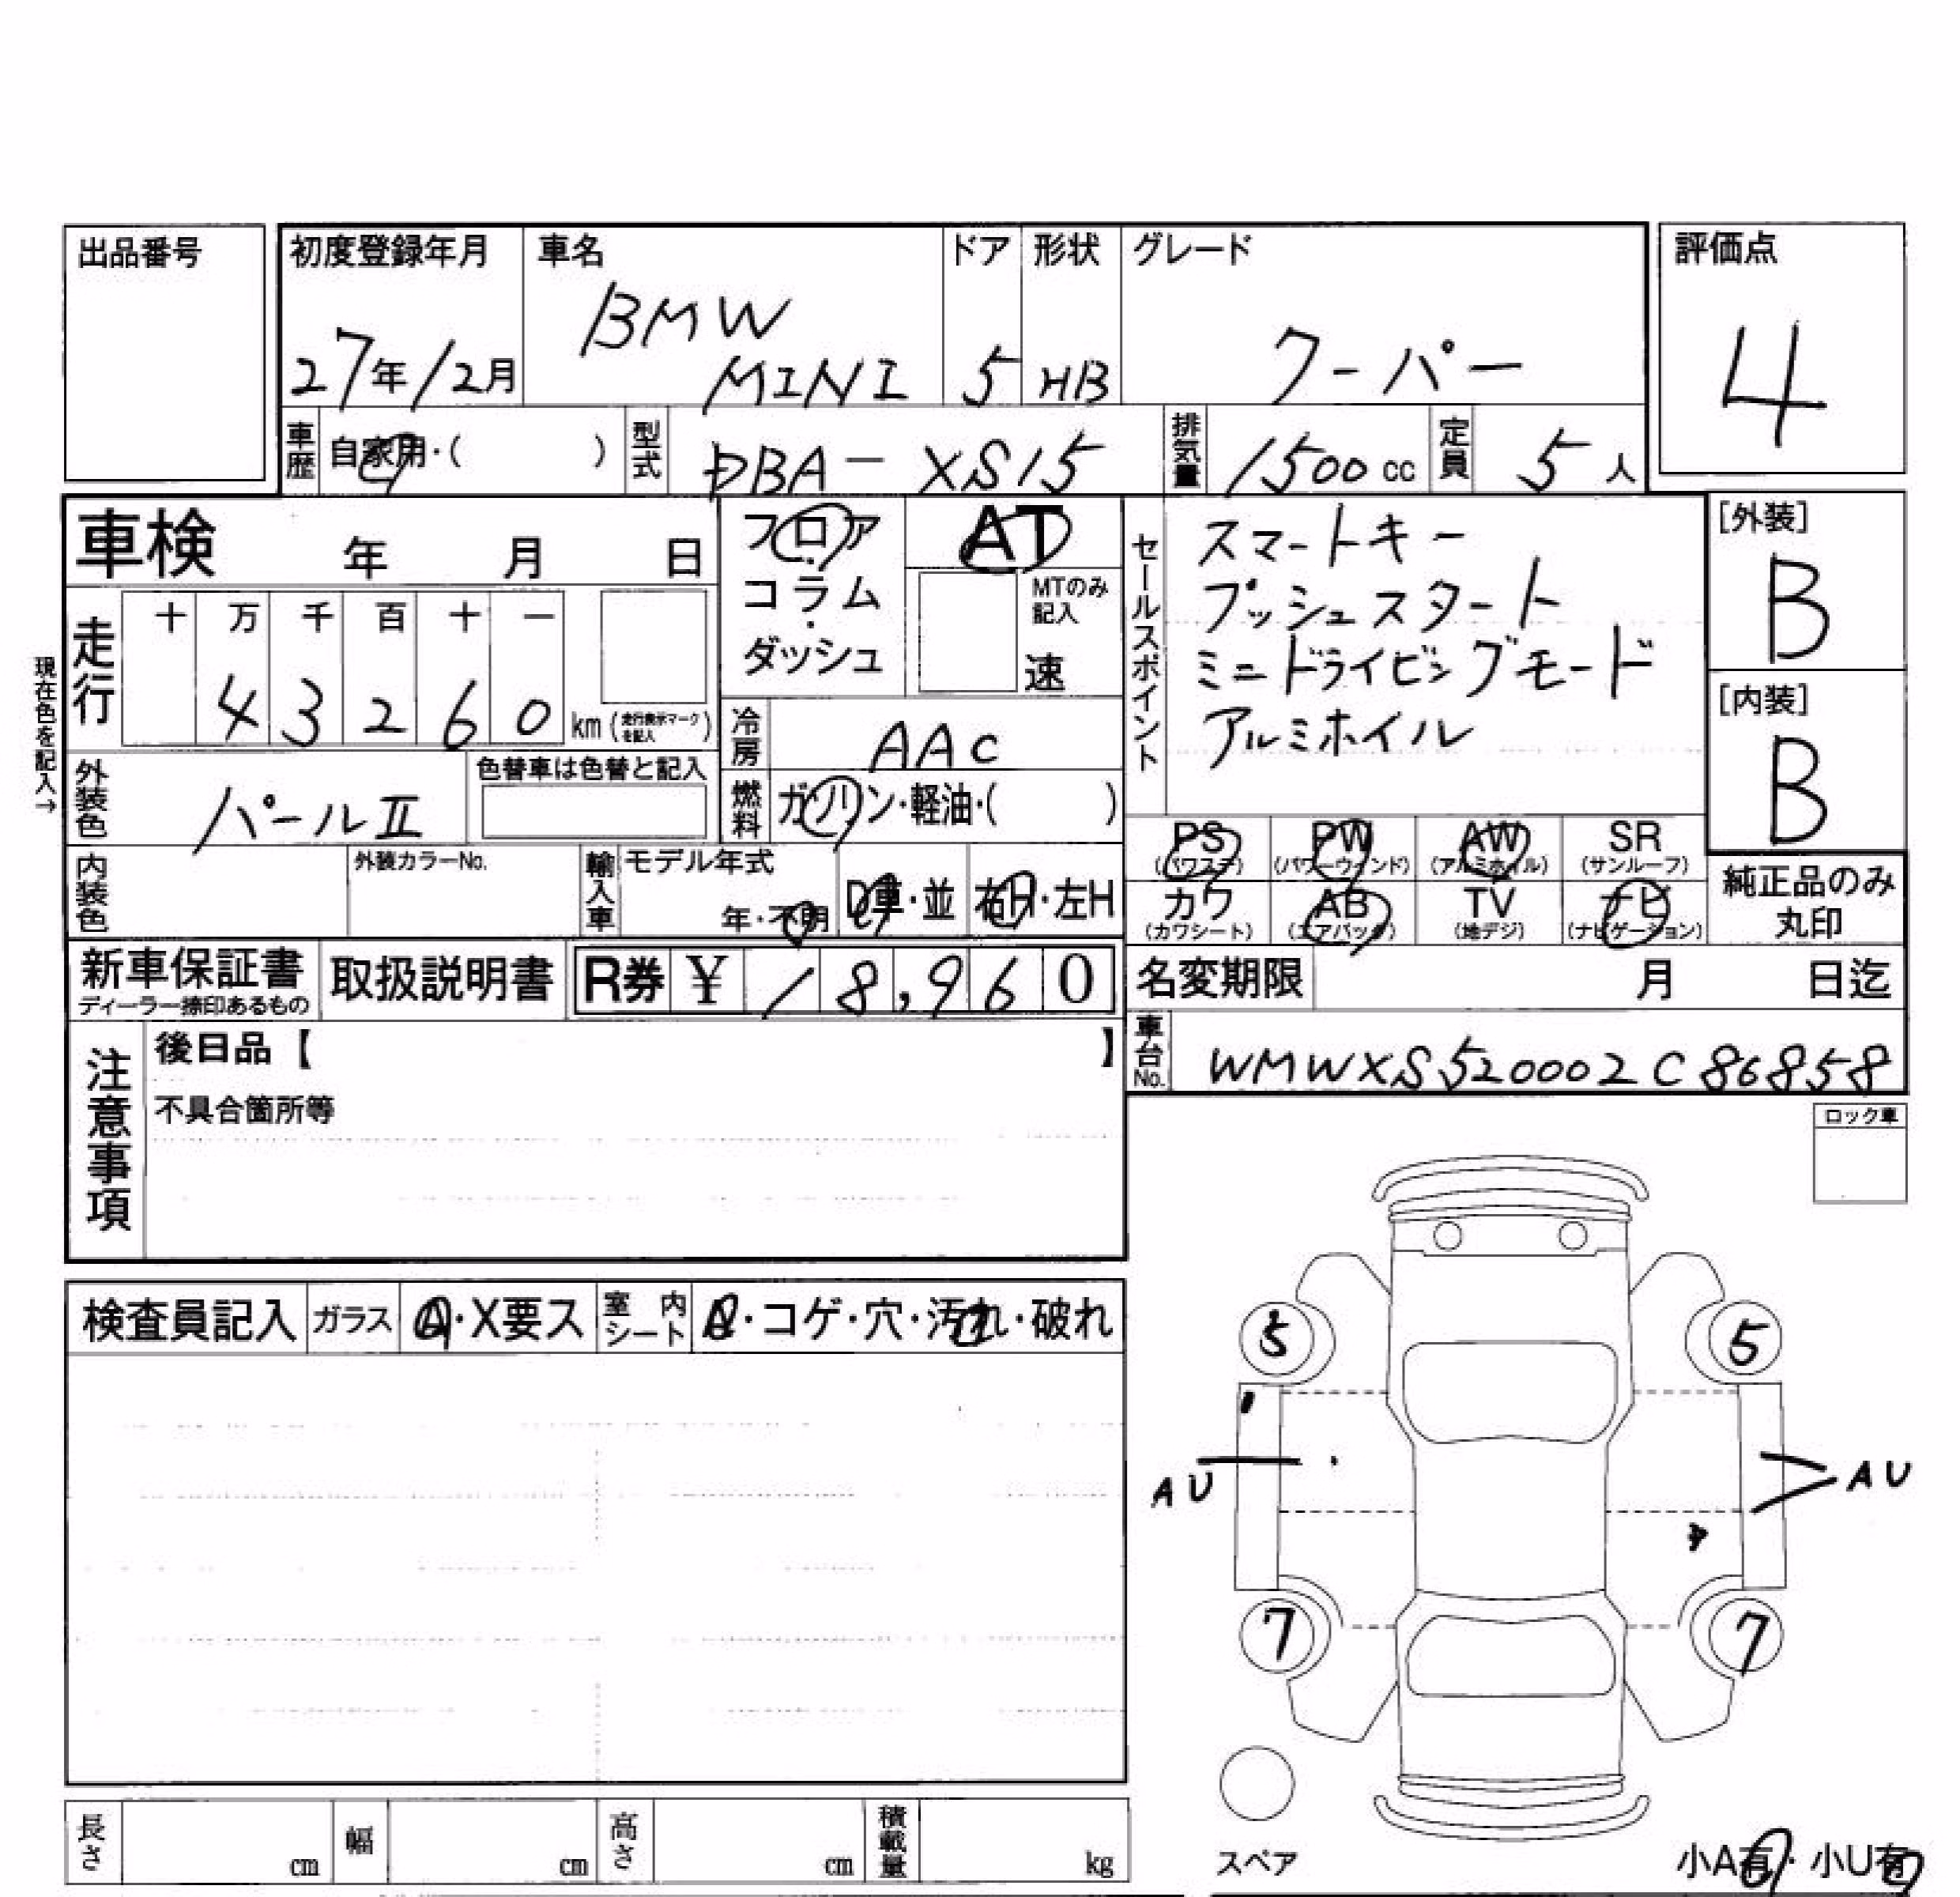 出品番号
初度登録年月
27年12月
車名
BMW
MINI
ドア
5
形状
HB
グレード
クーパー
評価点
4
車歴
自家用・( )
型式
DBA-XS15
排気量
1500cc
定員
5人
車検 年 月 日
フロア
・
コラム
・
ダッシュ
AT
MTのみ
記入
速
セールスポイント
スマートキー
プッシュスタート
ミニドライビングモード
アルミホイル
[外装]
B
[内装]
B
現在色を記入→
走行
十 万 千 百 十 一
4 3 2 6 0 km (走行表示マークを記入)
冷房
AAC
外装色
パールⅡ
色替車は色替と記入
燃料
ガソリン・軽油・( )
PS
(パワステ)
PW
(パワーウィンド)
AW
(アルミホイル)
SR
(サンルーフ)
内装色
外装カラーNo.
輸入車
モデル年式
年・不明
D車・並
右H・左H
カワ
(カワシート)
AB
(エアバック)
TV
(地デジ)
ナビ
(ナビゲーション)
純正品のみ
丸印
新車保証書
ディーラー捺印あるもの
取扱説明書
R券 ¥ 18,960
名変期限 月 日迄
車台No.
WMWXS520002C86858
注意事項
後日品【 】
不具合箇所等
ロック車
検査員記入
ガラス
A・X要ス
室内シート
・コゲ・穴・汚れ・破れ
5
5
AU
AU
7
7
スペア
小A有・小U有
長さ cm
幅 cm
高さ cm
積載量 kg